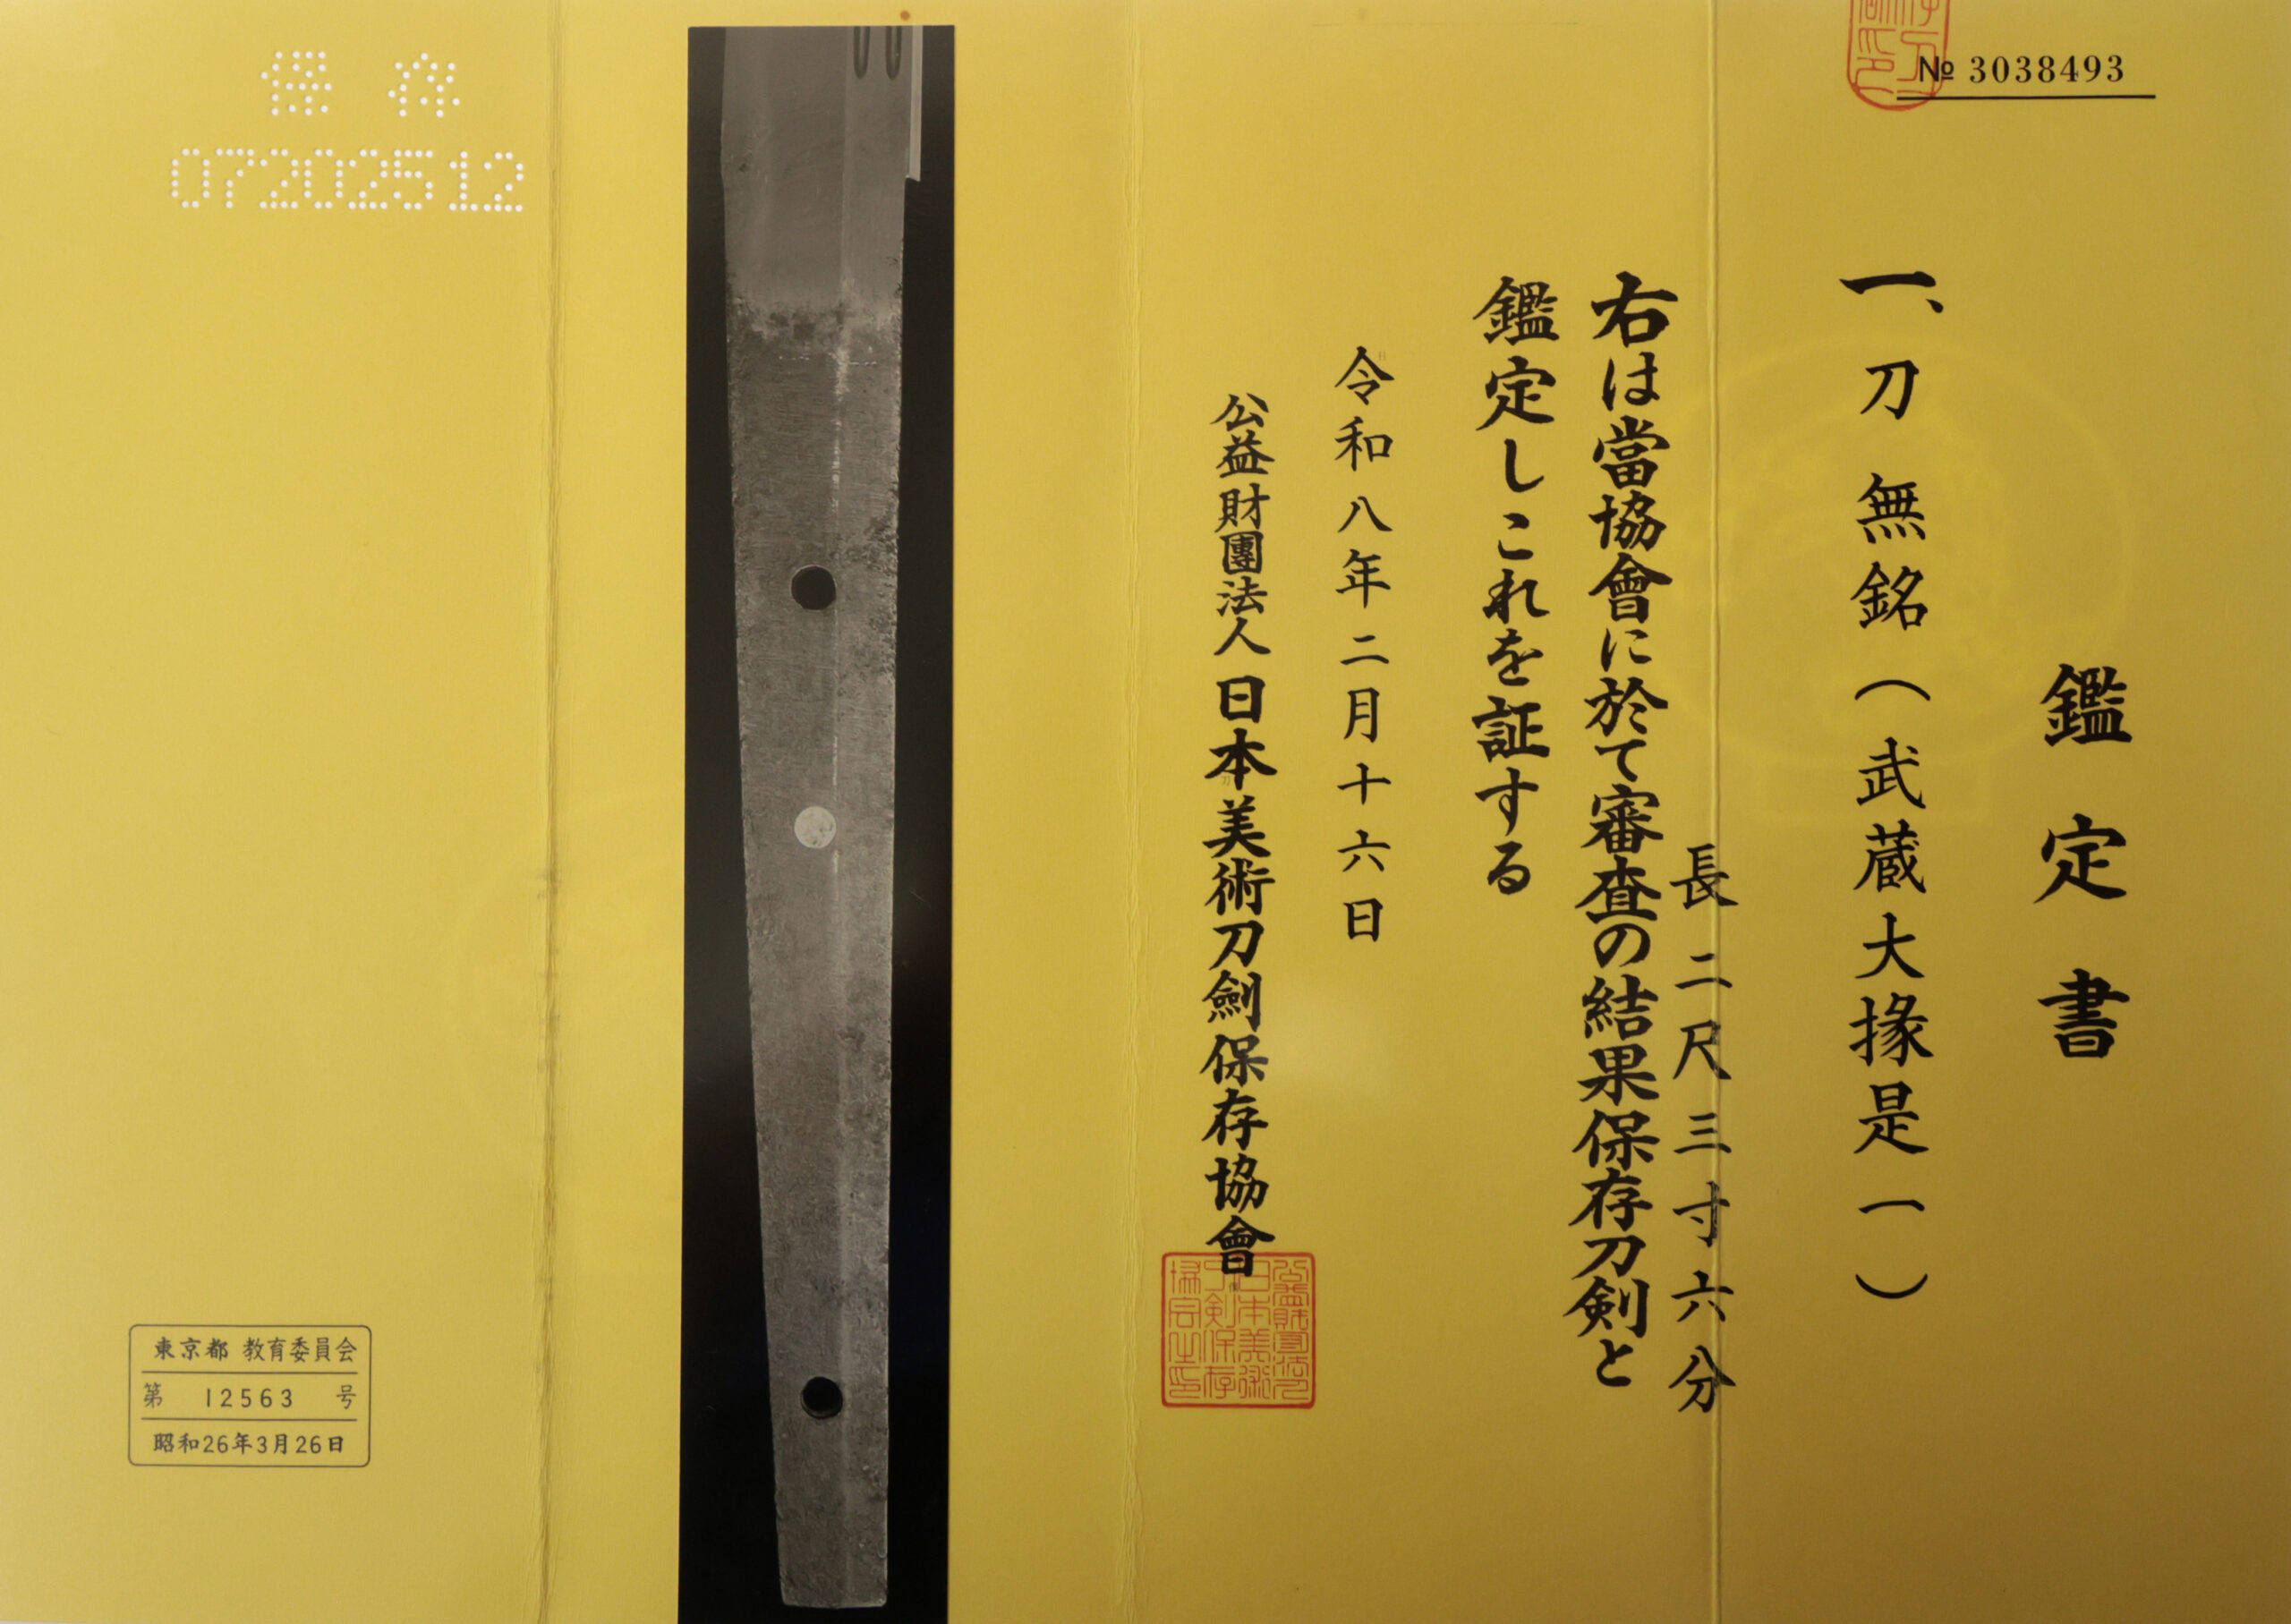 № 3038493
鑑定書
一、刀 無銘（武蔵大掾是一）
長二尺三寸六分
右は當協會に於て審査の結果保存刀剣と
鑑定しこれを証する
令和八年二月十六日
公益財團法人日本美術刀劍保存協會
保存
07202512
東京都 教育委員会
第 12563 号
昭和26年3月26日